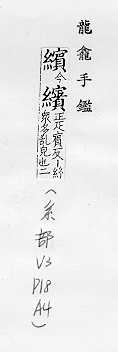 龍龕手鑑
繽今繽正疋賓反丨紛
衆多亂皃也二
(糸部 V3
P18
A4)